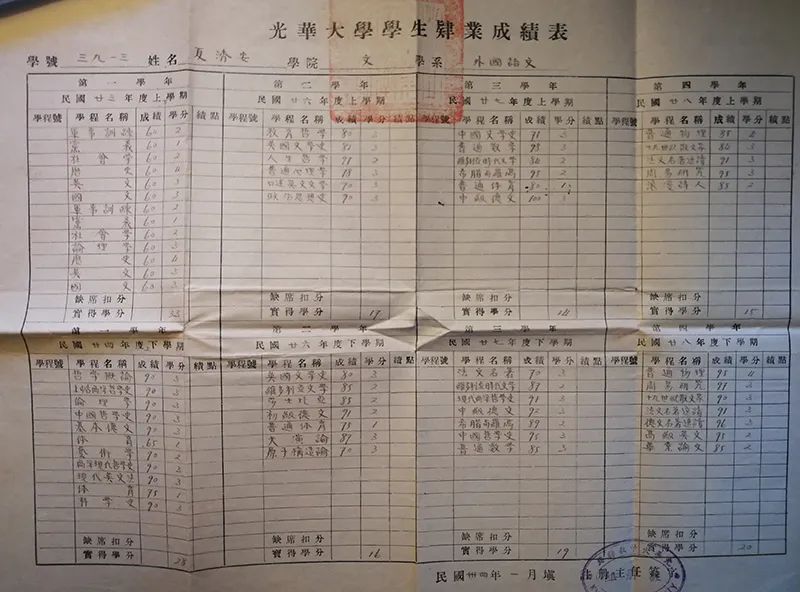 光華大學學生肄業成績表
學號 三九一三 姓名 夏濟安 學院 文 學系 外國語文
第一學年
民國廿三年度上學期
學程號 學程名稱 成績 學分 績點
軍事訓練 60 2
黨義 60 1
社會學 60 2
歷史 60 4
英文 60 3
國文 60 3
軍事訓練 60 2
黨義 60 1
社會學 60 2
論理學 60 3
歷史 60 4
英文 60 3
國文 60 3
缺席扣分
實得學分 33
第二學年
民國廿六年度上學期
學程號 學程名稱 成績 學分 績點
教育哲學 80 3
英國文學史 81 3
人生哲學 91 2
普通心理學 78 3
英文文學 90 3
政治思想史 90 3
缺席扣分
實得學分 17
第三學年
民國廿七年度上學期
學程號 學程名稱 成績 學分 績點
中國文學史 91 3
普通數學 95 3
維多利亞時代文學 86 2
希腊羅馬 95 2
普通体育 80 1
中級德文 100 3
缺席扣分
實得學分 14
第四學年
民國廿八年度上學期
學程號 學程名稱 成績 學分 績點
普通物理 95 4
十九世紀散文家 86 3
法文名著選讀 91 3
周易研究 95 3
浪漫詩人 85 2
缺席扣分
實得學分 15
第一學年
民國廿四年度下學期
學程號 學程名稱 成績 學分 績點
哲學概論 90 3
西洋哲學史 90 3
倫理學 90 3
中國哲學史 90 3
基本德文 90 3
体育 65 1
藝術學 90 2
西洋現代哲學史 90 3
現代英文法 90 3
体育 75 1
科學史 90 3
缺席扣分
實得學分 28
第二學年
民國廿六年度下學期
學程號 學程名稱 成績 學分 績點
英國文學史 80 3
維多利亞文學 85 2
莎士比亞 85 2
初級德文 91 2
普通体育 75 1
大寫論 87 3
原子構造論 90 3
缺席扣分
實得學分 16
第三學年
民國廿七年度下學期
學程號 學程名稱 成績 學分 績點
法文名著 90 3
維多利亞時代文學 87 2
現代西洋哲學史 91 3
中級德文 92 3
希腊羅馬 89 2
中國哲學史 95 3
普通數學 85 3
缺席扣分
實得學分 19
第四學年
民國廿八年度下學期
學程號 學程名稱 成績 學分 績點
普通物理 95 4
周易研究 91 3
十九世紀散文家 92 3
法文名著選讀 91 3
德文名著選讀 96 3
高級英文 95 2
畢業論文 85 2
缺席扣分
實得學分 20
民國卅四年一月填 註冊主任簽字